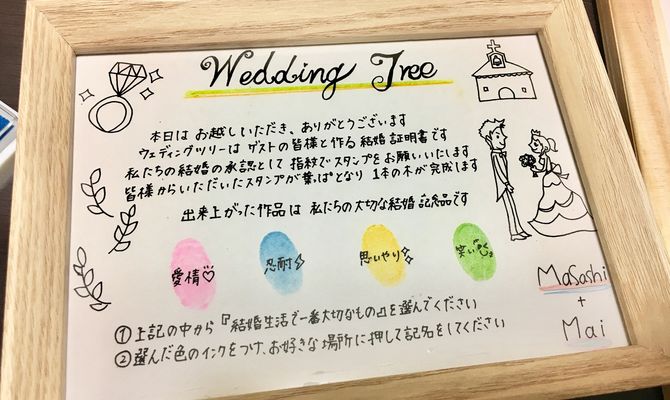 Wedding Tree
本日は お越しいただき、ありがとうございます
ウェディングツリーは ゲストの皆様と作る 結婚証明書です
私たちの結婚の承認として 指紋でスタンプをお願いいたします
皆様からいただいたスタンプが葉っぱとなり 1本の木が完成します
出来上がった作品は 私たちの大切な結婚記念品です
愛情♡
忍耐
思いやり
笑い
①上記の中から『結婚生活で一番大切なもの』を選んでください
②選んだ色のインクをつけ、お好きな場所に押して記名をしてください
Masashi
+
Mai